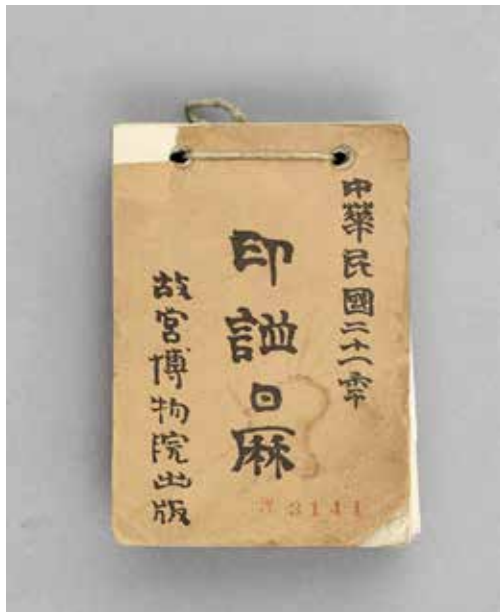 中華民國二十一年
印譜日曆
故宮博物院出版
3141